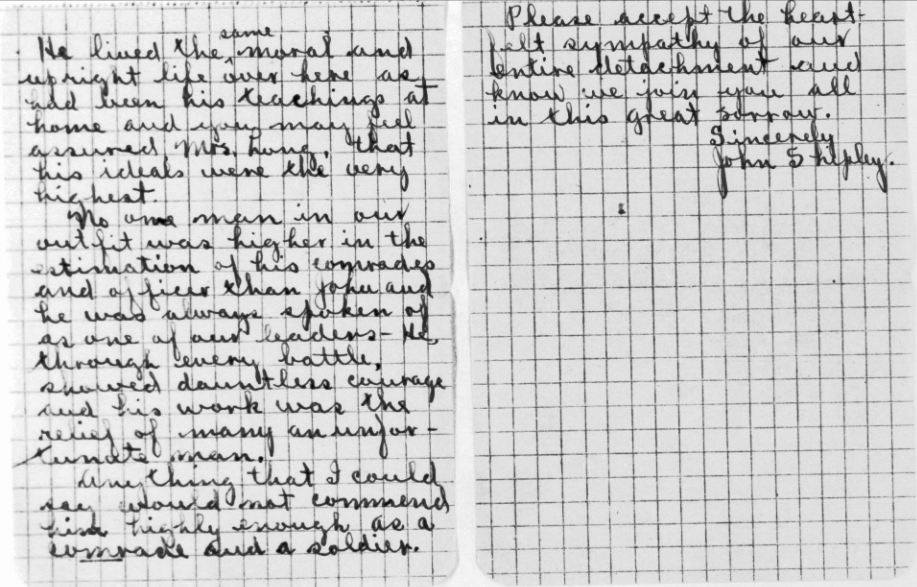 same
He lived the ^ moral and
upright life over here as
had been his teachings at
home and you may feel
assured, Mrs. Long, that
his ideals were the very
highest.
No one man in our
outfit was higher in the
estimation of his comrades
and officer than John and
he was always spoken of
as one of our leaders - He,
through every battle,
showed dauntless courage
and his work was the
relief of many an unfor-
tunate man.
Anything that I could
say would not commend
him highly enough as a
comrade and a soldier.
Please accept the heart-
felt sympathy of our
entire detachment and
know we join you all
in this great sorrow.
Sincerely
John Shipley.